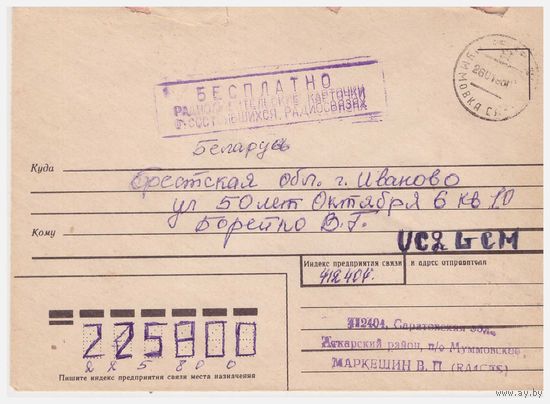 БЕСПЛАТНО
РАДИОЛЮБИТЕЛЬСКИЕ КАРТОЧКИ
О СОСТОЯВШИХСЯ РАДИОСВЯЗЯХ
Беларусь
Куда
Брестская обл. г. Иваново
ул 50 лет Октября 6 кв 10
Кому
Борейко В.Г.
UC2LCM
Индекс предприятия связи и адрес отправителя
412404.
412404, Саратовская обл.,
Аткарский район, п/о Муммовское
МАРКЕШИН В.П.
225800
225800
Пишите индекс предприятия связи места назначения
www.ay.by